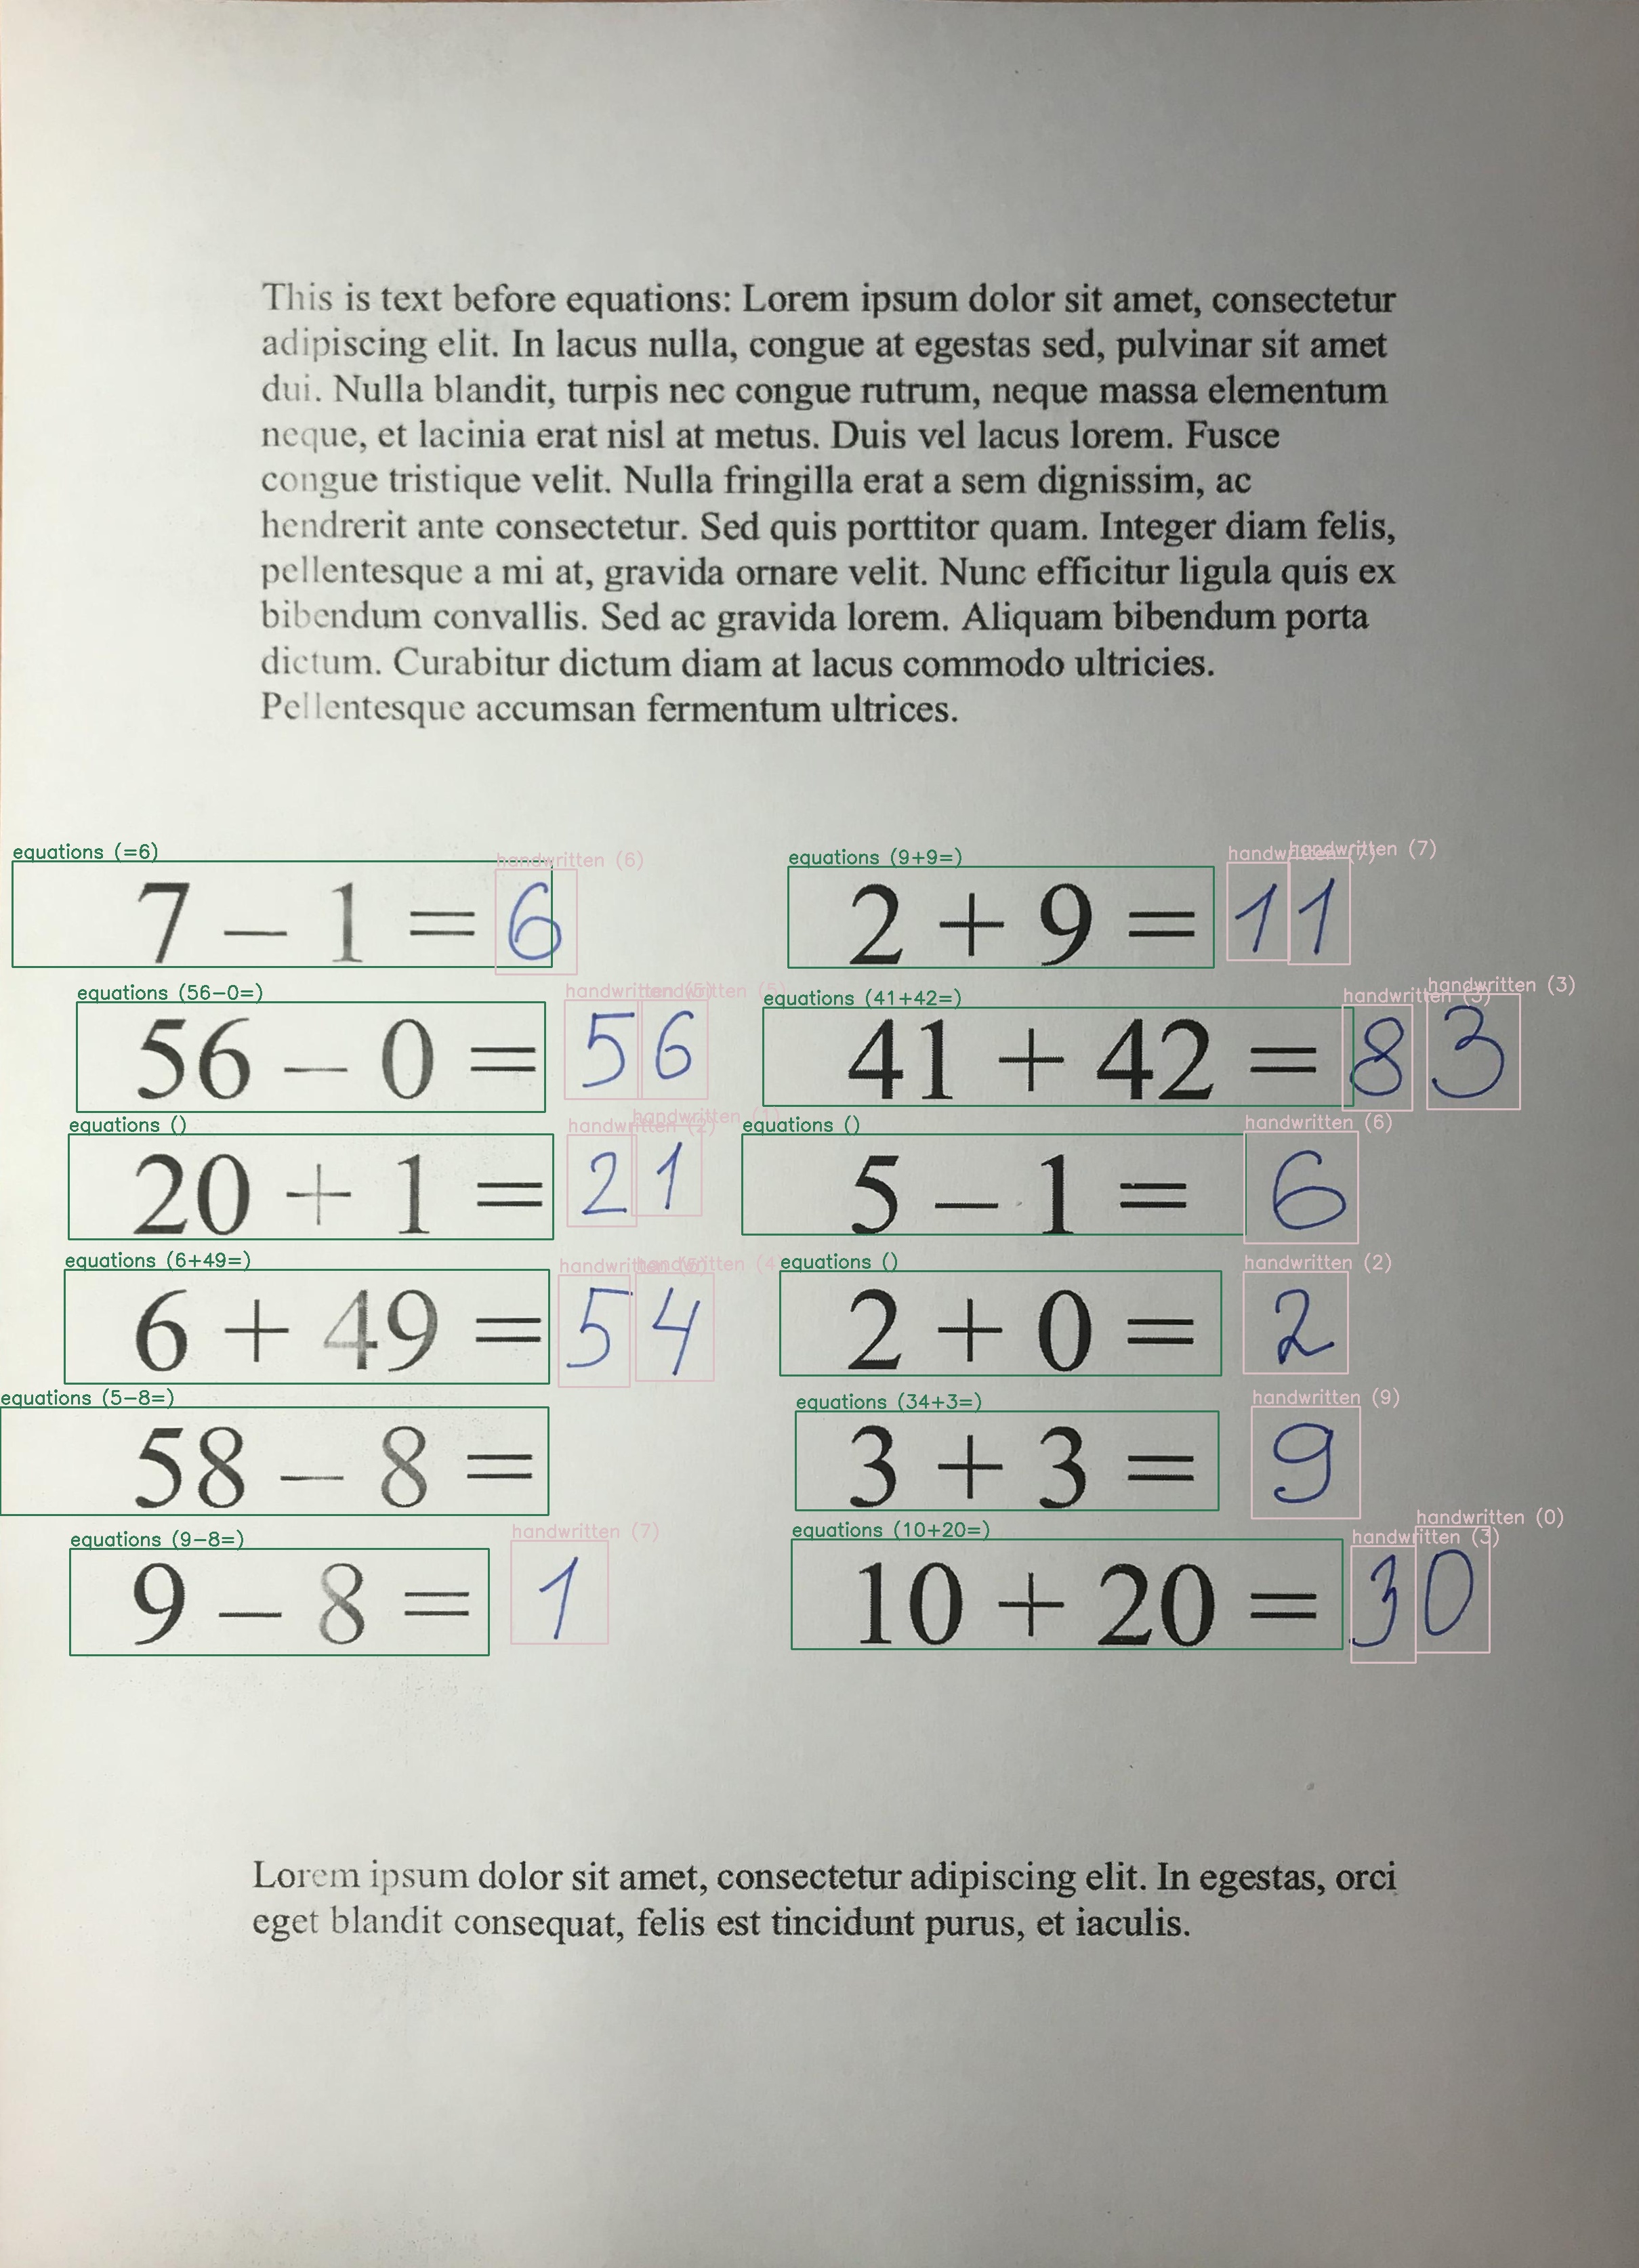 This is text before equations: Lorem ipsum dolor sit amet, consectetur
adipiscing elit. In lacus nulla, congue at egestas sed, pulvinar sit amet
dui. Nulla blandit, turpis nec congue rutrum, neque massa elementum
neque, et lacinia erat nisl at metus. Duis vel lacus lorem. Fusce
congue tristique velit. Nulla fringilla erat a sem dignissim, ac
hendrerit ante consectetur. Sed quis porttitor quam. Integer diam felis,
pellentesque a mi at, gravida ornare velit. Nunc efficitur ligula quis ex
bibendum convallis. Sed ac gravida lorem. Aliquam bibendum porta
dictum. Curabitur dictum diam at lacus commodo ultricies.
Pellentesque accumsan fermentum ultrices.
equations (=6) handwritten (6) equations (9+9=) handwritten (7) handwritten (7)
7 – 1 = 6 2 + 9 = 11
equations (56-0=) handwritten (5) handwritten (5) equations (41+42=) handwritten handwritten (3)
56 – 0 = 56 41 + 42 = 83
equations () handwritten (2) handwritten (1) equations () handwritten (6)
20 + 1 = 21 5 – 1 = 6
equations (6+49=) handwritten handwritten (4 equations () handwritten (2)
6 + 49 = 54 2 + 0 = 2
equations (5-8=) equations (34+3=) handwritten (9)
58 – 8 = 3 + 3 = 9
equations (9-8=) handwritten (7) equations (10+20=) handwritten (3) handwritten (0)
9 – 8 = 1 10 + 20 = 30
Lorem ipsum dolor sit amet, consectetur adipiscing elit. In egestas, orci
eget blandit consequat, felis est tincidunt purus, et iaculis.